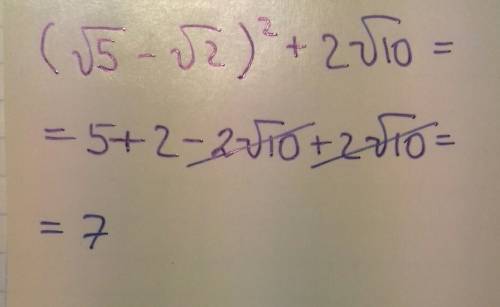 (√5 - √2)² + 2√10 =
= 5 + 2 - 2√10 + 2√10 =
= 7